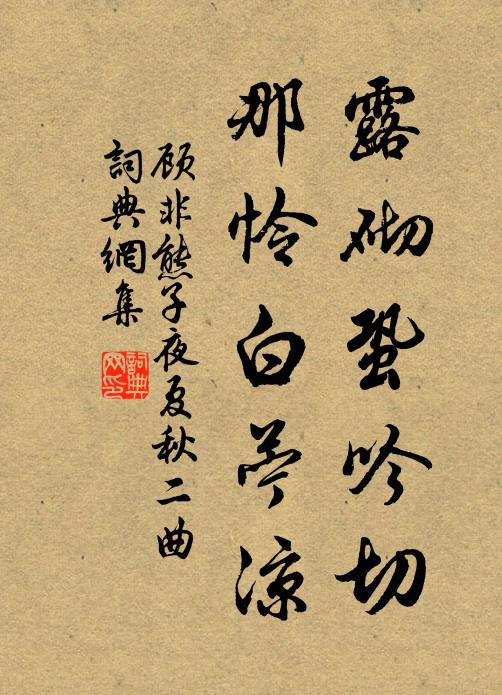 露砌蛩吟切
那怜白苎涼
顾非熊子夜夏秋二曲
詞典網集
詞典网印